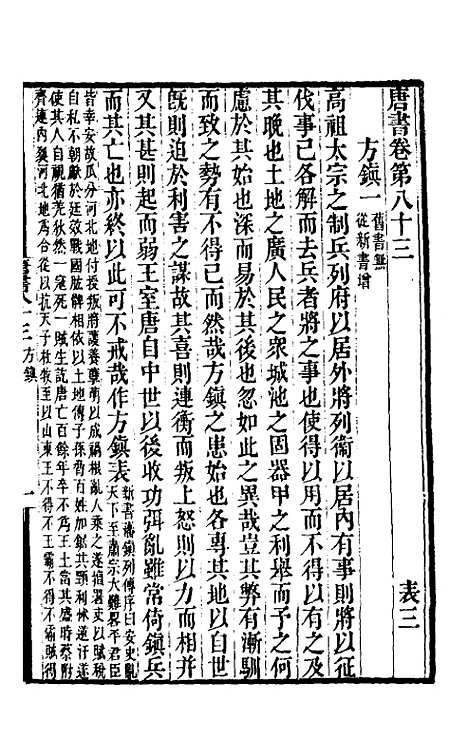 唐書卷第八十三
表三
方鎮一舊書無從新書增
高祖太宗之制兵列府以居外將列衞以居內有事則將以征
伐事已各解而去兵者將之事也使得以用而不得以有之及
其晚也土地之廣人民之衆城池之固器甲之利舉而予之何
慮於其始也深而易於其後也忽如此之異哉豈其弊有漸馴
而致之勢有不得已而然哉方鎭之患始也各專其地以自世
旣則迫於利害之謀故其喜則連衡而叛上怒則以力而相幷
又其甚則起而弱王室唐自中世以後收功弭亂雖常倚鎭兵
而其亡也亦終以此可不戒哉作方鎭表新書藩鎭列傳序曰安史亂
天下至肅宗大難畧平君臣
皆幸安故瓜分河北地付授叛將護養孽萌以成禍根亂人乘之遂擅署吏以賦稅
自私不朝獻於廷效戰國肱髀相依以土地傳子孫脅百姓加鋸其頸利怵逆汙遂
使其人自視猶羌狄然一寇死一賊生訖唐亡百餘年卒不爲王土當其盛時蔡附
齊連內裂河北地爲合從以抗天子杜牧至以山東王不得不王霸不得不霸賊得
唐書八十三 方鎮
一